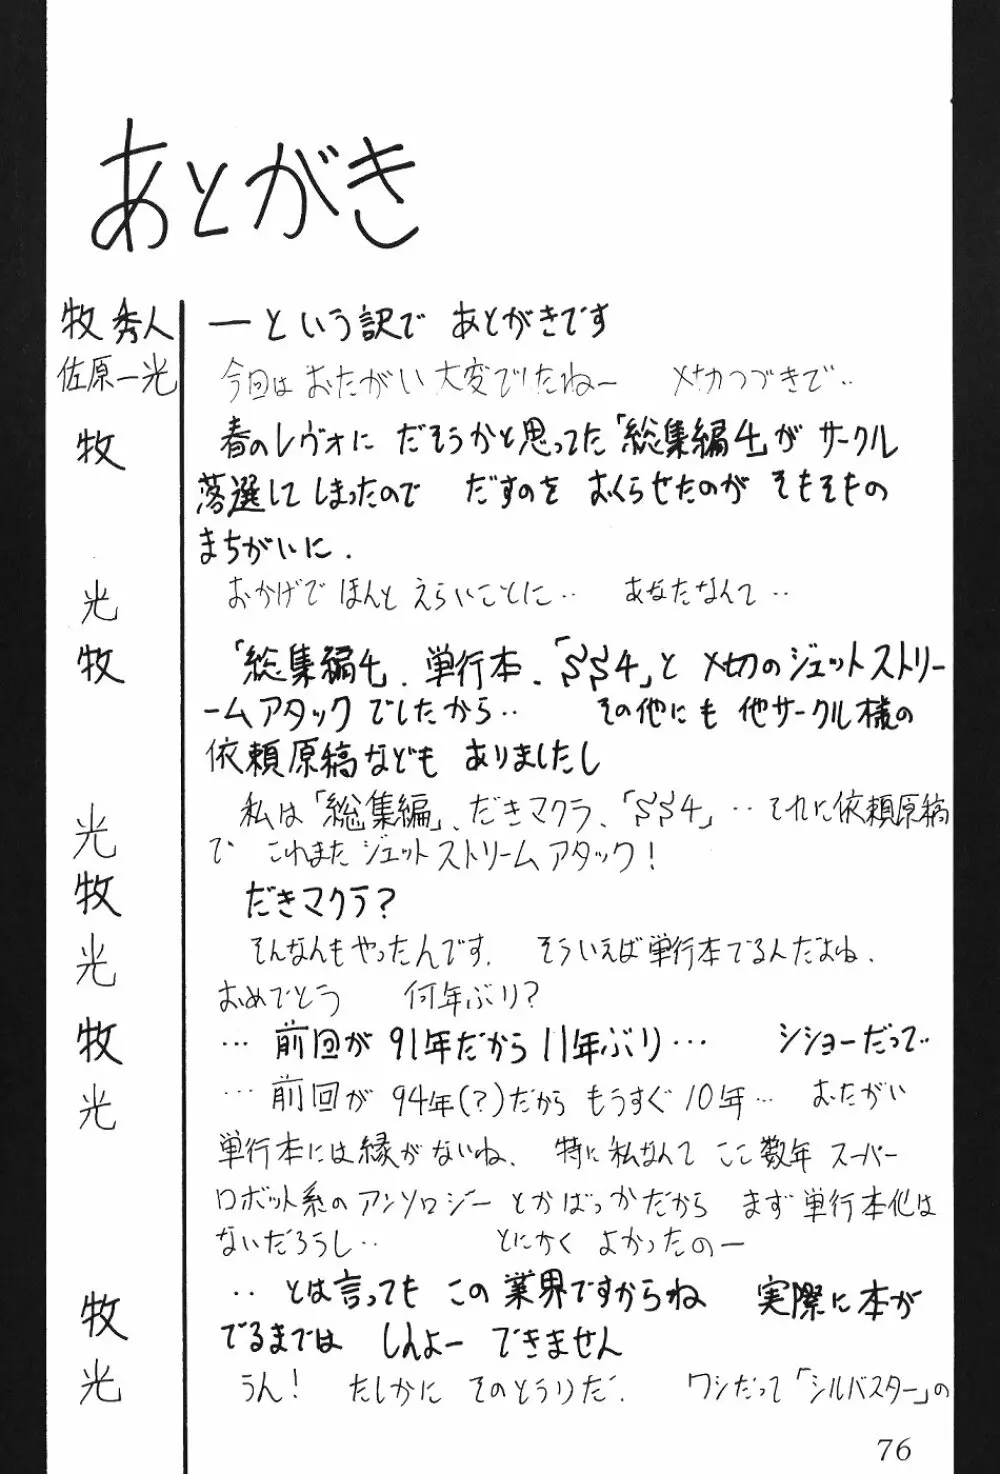 あとがき
牧秀人 ―という訳で あとがきです
佐原一光 今回は おたがい 大変でしたねー 〆切つづきで‥
牧 春のレヴォに だそうかと思ってた「総集編4」が サークル
落選して しまったので だすのを おくらせたのが そもそもの
まちがいに.
光 おかげで ほんと えらいことに‥ あなたなんて‥
牧 「総集編4」、単行本、「SS4」と 〆切のジェットストリー
ームアタックでしたから‥ その他にも 他サークル様の
依頼原稿なども ありましたし
光 私は「総集編」、だきマクラ、「SS4」‥それに依頼原稿
で これまたジェットストリームアタック!
牧 だきマクラ?
光 そんなんもやったんです. そういえば単行本でるんだよね.
おめでとう 何年ぶり?
牧 …前回が 91年だから 11年ぶり… シショーだって
光 …前回が 94年(?)だから もうすぐ 10年… おたがい
単行本には縁がないね. 特に私なんて ここ数年 スーパー
ロボット系のアンソロジー とかばっかだから まず単行本化は
ないだろうし‥ とにかく よかったのー
牧 ‥とは言っても この業界ですからね 実際に本が
でるまでは しんよー できません
光 うん! たしかに そのとうりだ. ワシだって「シルバスター」の
76